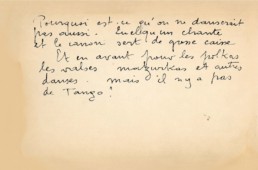 Pourquoi est-ce qu'on ne danserait
pas aussi. Quelqu'un chante
et le canon sert de grosse caisse
Et en avant pour les polkas
les valses mazurkas et autres
danses. mais il n'y a pas
de Tango!